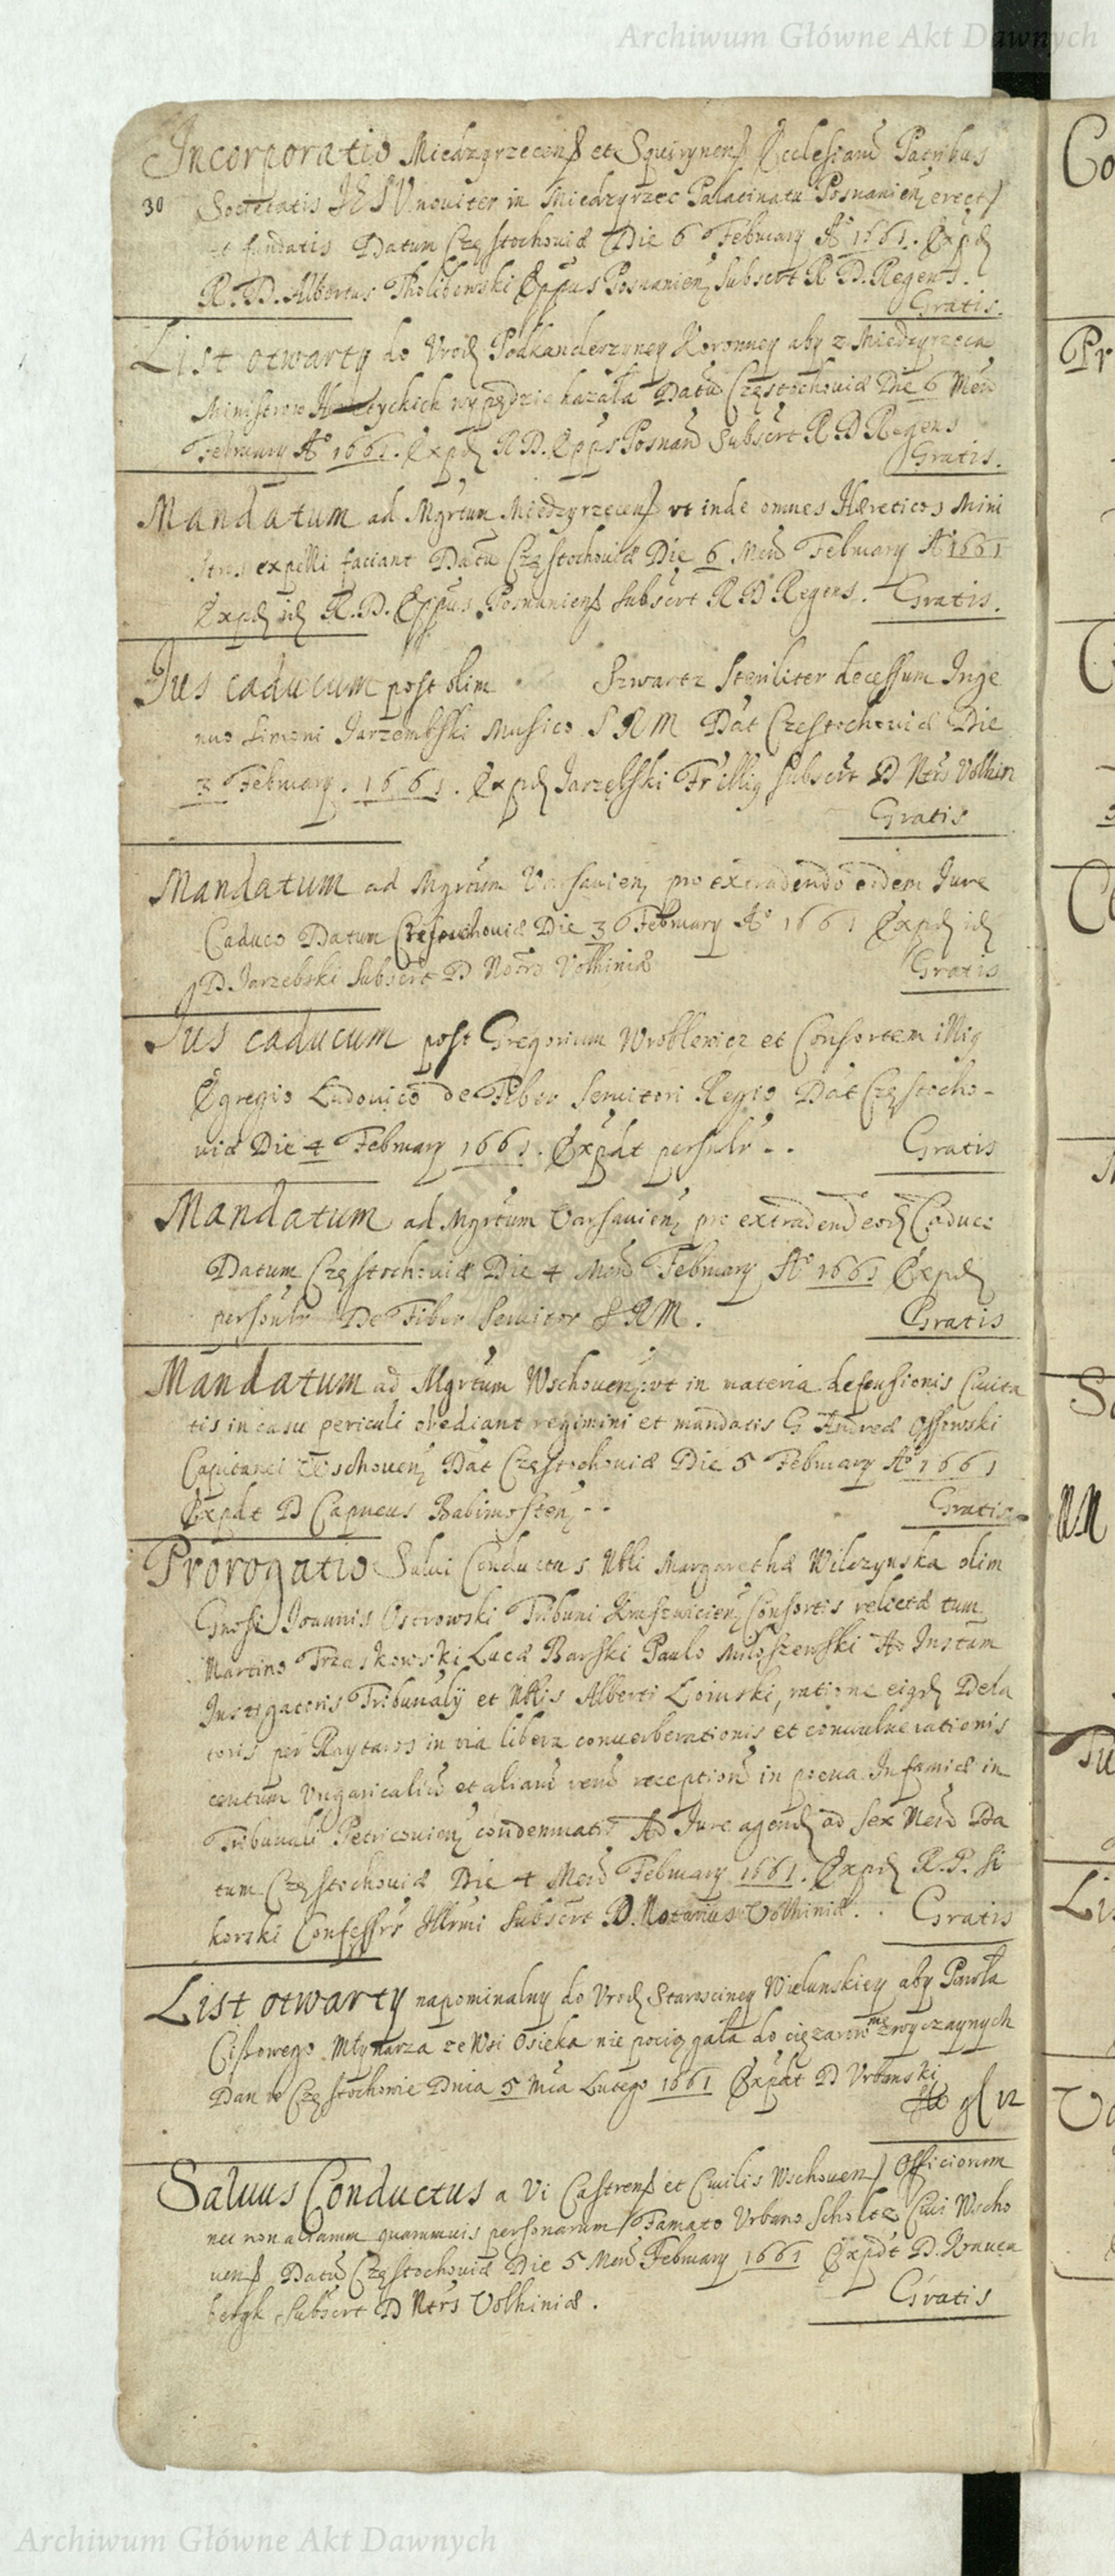 Archiwum Główne Akt Dawnych
Incorporatio Miedzyrzecens et Squirynens Ecclesiarũ Patribus
30 Societatis IESV noviter in Miedzyrzec Palatinatu Posnanien erect
et fundatis Datum Częstochoviæ Die 6 February Aº 1661. Expd
R. D. Albertus Tholibowski Eppus Posnanien Subscrt R. D. Regens.
Gratis.
List otwarty do Urod Podkanderzyney Koronney aby z Miedzyrzeca
Ministrow Heretyckich wypędzic kazała Datũ Częstochoviæ Die 6 Men
February Aº 1661. Expd R D. Epps Posnan Subscrt R D Regens
Gratis.
Mandatum ad Mgrtum Miedzyrzecens vt inde omnes Hæreticos Mini
stros expelli faciant Datũ Częstochoviæ Die 6 Men February Aº 1661
Expd id R. D. Eppus Posnaniens Subscrt R D Regens. Gratis.
Ius caducum post olim Szwartz Steriliter decessum Inge
nuo Simoni Jarzembski Musico S R M Dat Częstochoviæ Die
3 February. 1661. Expd Jarzębski Fr illig Subscrt D Ntrs Volhin
Gratis
Mandatum ad Mgrtum Varsavien pro extradendo eodem Jure
Caduco Datum Częstochoviæ Die 3 February Aº 1661 Expd id
D. Jarzebski Subscrt D Notrs Volhiniæ
Gratis
Ius caducum post Gregorium Wroblewicz et Consortem illig
Egregio Ludovico de Fiber Servitori Regio Dat Częstocho-
viæ Die 4 February 1661. Expdt persnlr . . Gratis
Mandatum ad Mgrtum Varsavien pro extradend eod Caduco
Datum Częstochoviæ Die 4 Men February Aº 1661 Expd
personlr De Fiber Servitor S R M. Gratis
Mandatum ad Mgrtum Wschoven vt in materia defensionis Civita
tis in casu periculi obediant regimini et mandatis G Andreæ Ossowski
Capitanei Wschoven Dat Częstochoviæ Die 5 February Aº 1661
Expdt D Capneus Babimosten . . Gratis
Prorogatio Salvi Conductus Nbli Margarethæ Wilczynska olim
Gnosi Joannis Ostrowski Tribuni Kruszvicien Consortis relictæ tum
Martino Trzaskowski Lucæ Barski Paulo Miloszewski Ad Instam
Instigatoris Tribunalÿ et Nblis Alberti Loinski, ratione eigd Dela
toris per Raytaros in via libera converberationis et convulnerationis
centum Vngaricaliũ et aliarũ rerũ receptionẽ in poena Infamiæ in
Tribunali Petricovien condemnatis Ad Jure agend ad sex Men Da
tum Częstochoviæ Die 4 Men February 1661. Expd R. P. Si
korski Confessrs Illrmi Subscrt D. Notarius Volhiniæ. . Gratis
List otwarty napominalny do Urod Starosciney Wielunskiey aby Pawła
Cisowego Młynarza ze Wsi Osieka nie pociągała do ciężarow nezwyczaynych
Dan w Częstochowie Dnia 5 Mca Lutego 1661 Expdt D Urbanski
gl 12
Salvus Conductus a Vi Castrens et Civilis Wschoven Officiorum
nec non aliarum quarumvis personarum Famato Urbano Scholtz Civi Wscho
vens Datũ Częstochoviæ Die 5 Men February 1661 Expdt D. Krauen
bergk Subscrt D Ntrs Volhiniæ.
Gratis
Archiwum Główne Akt Dawnych